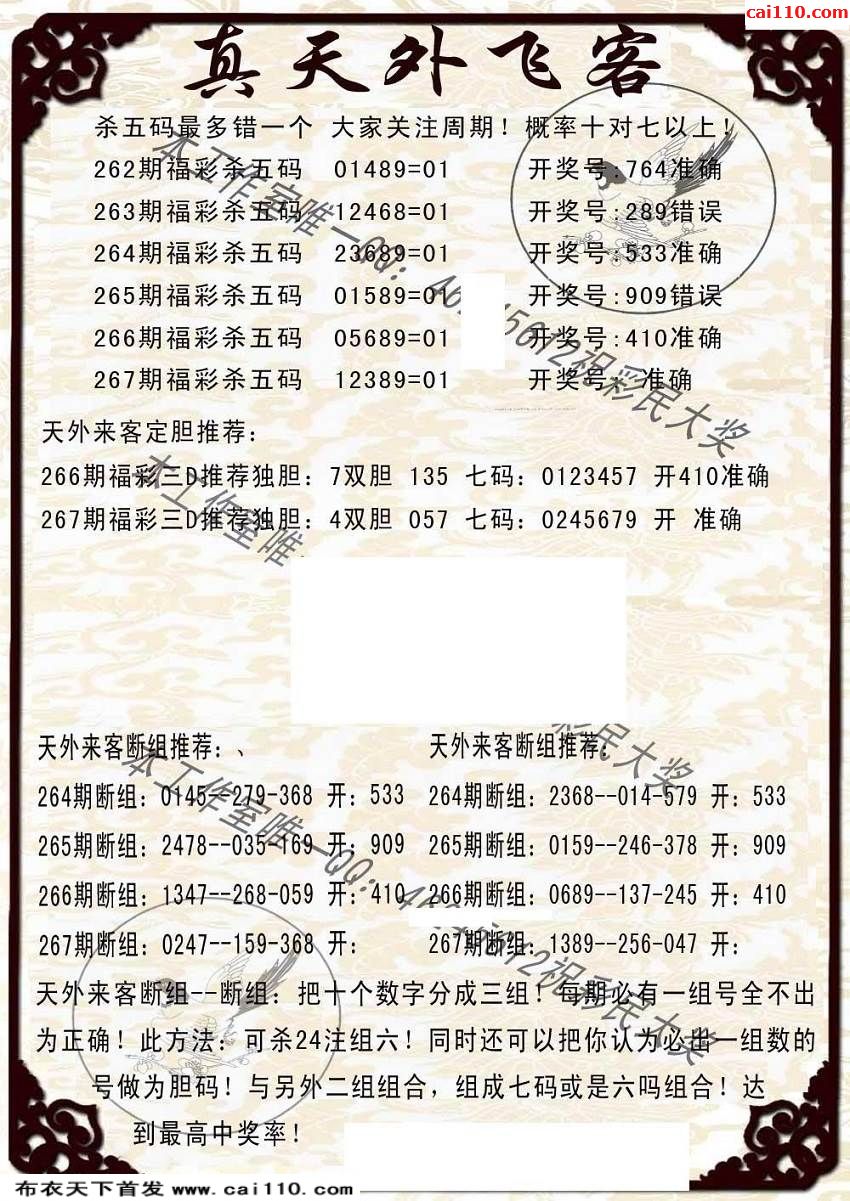 cai110.com
真天外飞客
杀五码最多错一个 大家关注周期！概率十对七以上！
262期福彩杀五码 01489=01 开奖号:764准确
263期福彩杀五码 12468=01 开奖号:289错误
264期福彩杀五码 23689=01 开奖号:533准确
265期福彩杀五码 01589=01 开奖号:909错误
266期福彩杀五码 05689=01 开奖号:410准确
267期福彩杀五码 12389=01 开奖号: 准确
天外来客定胆推荐：
266期福彩三D推荐独胆：7双胆 135 七码：0123457 开410准确
267期福彩三D推荐独胆：4双胆 057 七码：0245679 开 准确
天外来客断组推荐：、 天外来客断组推荐：
264期断组：0145--279-368 开：533 264期断组：2368--014-579 开：533
265期断组：2478--035-169 开：909 265期断组：0159--246-378 开：909
266期断组：1347--268-059 开：410 266期断组：0689--137-245 开：410
267期断组：0247--159-368 开： 267期断组：1389--256-047 开：
天外来客断组--断组：把十个数字分成三组！每期必有一组号全不出
为正确！此方法：可杀24注组六！同时还可以把你认为必出一组数的
号做为胆码！与另外二组组合，组成七码或是六吗组合！达
到最高中奖率！
本工作室唯一QQ：
祝彩民大奖
本工作室唯
彩民大奖
本工作室唯一QQ：
祝彩民大奖
布衣天下首发 www.cai110.com